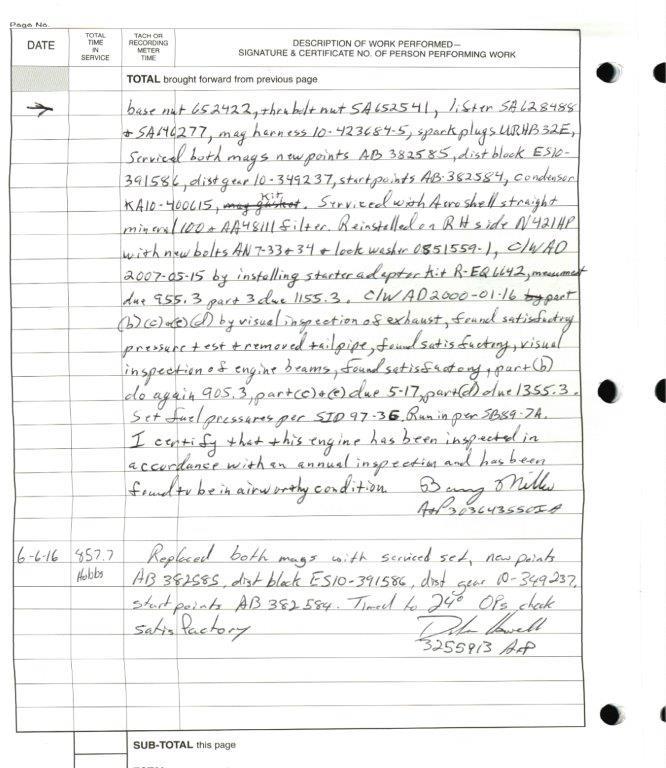 Page No.
DATE
TOTAL TIME IN SERVICE
TACH OR RECORDING METER TIME
DESCRIPTION OF WORK PERFORMED—
SIGNATURE & CERTIFICATE NO. OF PERSON PERFORMING WORK
TOTAL brought forward from previous page
base nut 652422, thrubolt nut SA652541, lifter SA628488
+ SA646277, mag harness 10-423684-5, spark plugs URHB32E,
Serviced both mags new points AB 382585, dist block ES10-
391586, dist gear 10-349237, start points AB-382584, condensor
KA10-400615, mag gasket kit. Serviced with Aeroshell straight
mineral 100 + AA48111 filter. Reinstalled on RH side N421HP
with new bolts AN7-33+34 + lock washer 0851559-1, C/W AD
2007-05-15 by installing starter adapter kit R-EQ6642, measured
due 955.3 part 3 due 1155.3. C/W AD2000-01-16 by part
(b)(c)+(e)(d) by visual inspection of exhaust, found satisfactory
pressure test + removed tailpipe, found satisfactory, visual
inspection of engine beams, found satisfactory, part(b)
do again 905.3, part(c)+(e) due 5-17, part(d) due 1355.3.
Set fuel pressures per SID 97-3E. Run in per SB89-7A.
I certify that this engine has been inspected in
accordance with an annual inspection and has been
found to be in airworthy condition. Barry Miller
A+P 303643550IA
6-6-16 857.7 Replaced both mags with serviced set, new points
Hobbs AB 382585, dist block ES10-391586, dist gear 10-349237,
start points AB 382584. Timed to 24° OPs check
satisfactory
3255913 A+P
SUB-TOTAL this page